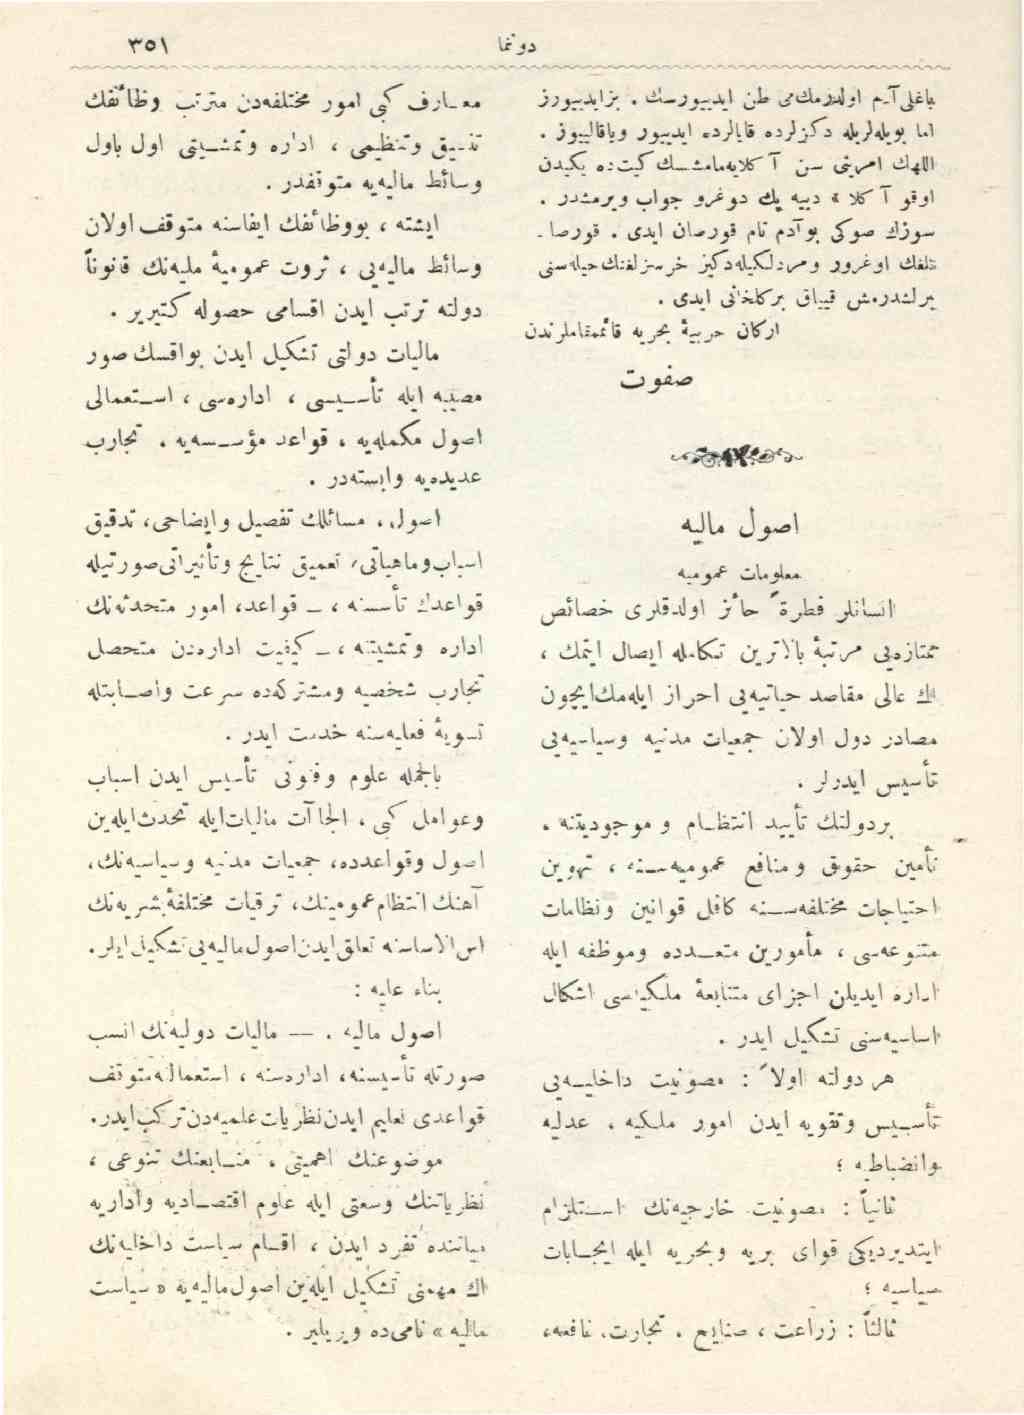 دوننما
٣٥١
باغلی آدم اولدرمك‌می ظن ایدییورسك . بزایدییورز
اما بویله‌لریله دكزلرده قایالرده ایدییور ویاقالییور .
اللهك امرینی سن آ كلایه‌مامشسك كیت ده یكیدن
اوقو آ كلا » دییه پك دوغرو جواب ویرمشدر .
سوزك صوكی بو آدم تام قورصان ایدی . قورصا ـ
نلغك اوغرور ومردلكیله‌دكیز خرسزلغنك‌حیله‌سنی
برلشدرمش قیباق بركلخانی ایدی .
اركان حربیۀ بحریه قائممقاملرندن
صفوت
اصول مالیه
معلومات عمومیه
انسانلر فطرةً حائز اولدقلری خصائص
ممتازه‌یی مرتبۀ بالاترین تكامله ایصال ایتمك ،
اك عالی مقاصد حیاتیه‌یی احراز ایله‌مك‌ایچون
مصادر دول اولان جمعیات مدنیه وسیاسیه‌یی
تأسیس ایدرلر .
بردولتك تأیید انتظام و موجودیتنه ،
تأمین حقوق ومنافع عمومیه‌سنه ، تهوین
احتیاجات مختلفه‌سنه كافل قوانین ونظامات
متنوعه‌سی ، مأمورین متعدده وموظفه ایله
اداره ایدیلن اجزای متتابعۀ ملكیه‌سی اشكال
اساسیه‌سنی تشكیل ایدر .
هر دولته اولاً : مصونیت داخلیه‌یی
تأسیس وتقویه ایدن امور ملكیه ، عدلیه
وانضباطیه ؛
ثانیاً : مصونیت خارجیه‌نك استلزام
ایتدیردیكی قوای بریه وبحریه ایله ایجابات
سیاسیه ؛
ثالثاً : زراعت ، صنایع ، تجارت، نافعه،
معارف كبی امور مختلفه‌دن مترتب وظائفك
تنسیق وتنظیمی ، اداره وتمشیتی اول باول
وسائط مالیه‌یه متوقفدر .
ایشته ، بووظائفك ایفاسنه متوقف اولان
وسائط مالیه‌یی ، ثروت عمومیۀ ملیه‌نك قانوناً
دولته ترتب ایدن اقسامی حصوله كتیریر .
مالیات دولتی تشكیل ایدن بواقسك صور
مصیبه ایله تأسیسی ، اداره‌سی ، استعمالی
اصول مكمله‌یه ، قواعد مؤسسه‌یه ، تجارب
عدیده‌یه وابسته‌در .
اصول، مسائلك تفصیل وایضاحی، تدقیق
اسباب‌وماهیاتی، تعمیق نتایج وتأثیراتی‌صورتیله
قواعدك تأسسنه ، ـ قواعد، امور متحدثه‌نك
اداره وتمشیتنه ، ـ كیفیت اداره‌دن متحصل
تجارب شخصیه ومشتركه‌ده سرعت واصابتله
تسویۀ فعلیه‌سنه خدمت ایدر .
بالجمله علوم وفنونی تأسیس ایدن اسباب
وعوامل كبی ، الجاآت مالیات‌ایله تحدث‌ایله‌ین
اصول وقواعدده، جمعیات مدنیه وسیاسیه‌نك،
آهنك انتظام‌عمومینك، ترقیات مختلفۀبشریه‌نك
اس‌الاساسنه تعلق‌ایدن‌اصول‌مالیه‌یی‌تشكیل‌ایلر.
بناء علیه :
اصول مالیه . — مالیات دولیه‌نك انسب
صورتله تأسیسنه، اداره‌سنه ، استعمالنه‌متوقف
قواعدی تعلیم ایدن‌نظریات‌علمیه‌دن‌تركب‌ایدر.
موضوعنك اهمیتی ، منابعنك تنوعی ،
نظریاتنك وسعتی ایله علوم اقتصادیه واداریه
میاننده تفرد ایدن ، اقسام سیاست داخلیه‌نك
اك مهمنی تشكیل ایله‌ین اصول‌مالیه‌یه « سیاست
مالیه » نامی‌ده ویریلیر .